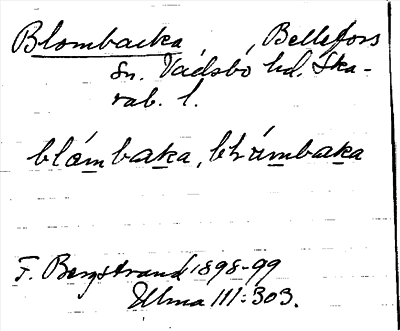 Blombacka, Bellefors
sn. Vadsbo hd. Ska-
rab. l.
blómbaka, blómbaka
F. Bergstrand 1898-99
Ulma 111:303.